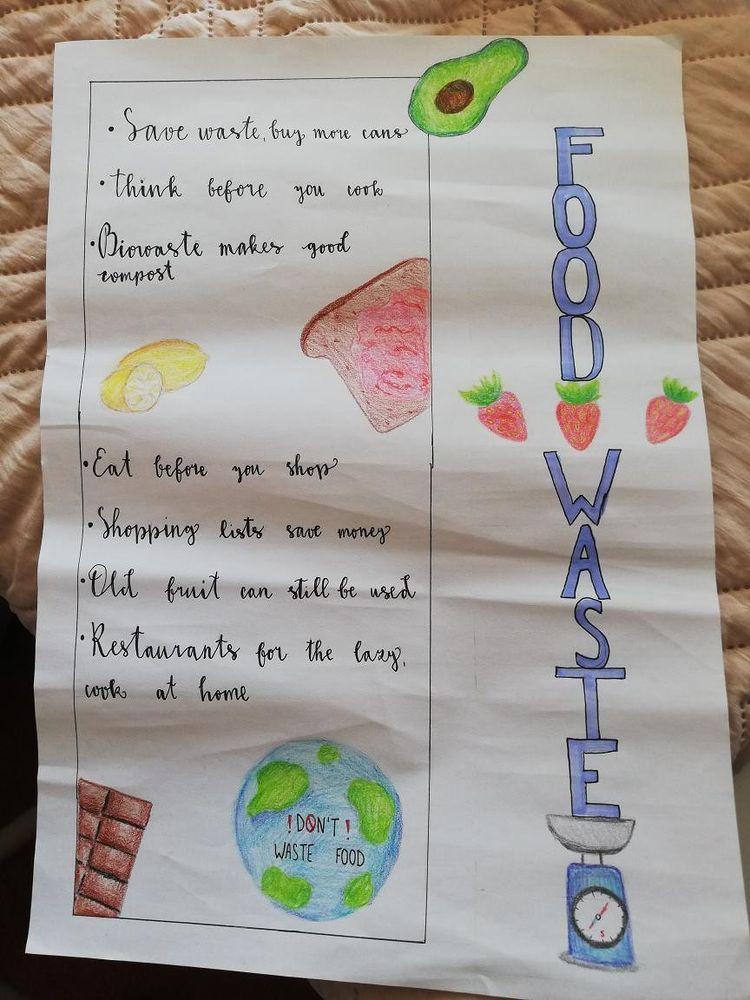 • Save waste, buy more cans
• think before you cook
• Biowaste makes good
compost
• Eat before you shop
• Shopping lists save money
• Old fruit can still be used
• Restaurants for the lazy,
cook at home
! DON'T !
WASTE FOOD
FOOD
WASTE